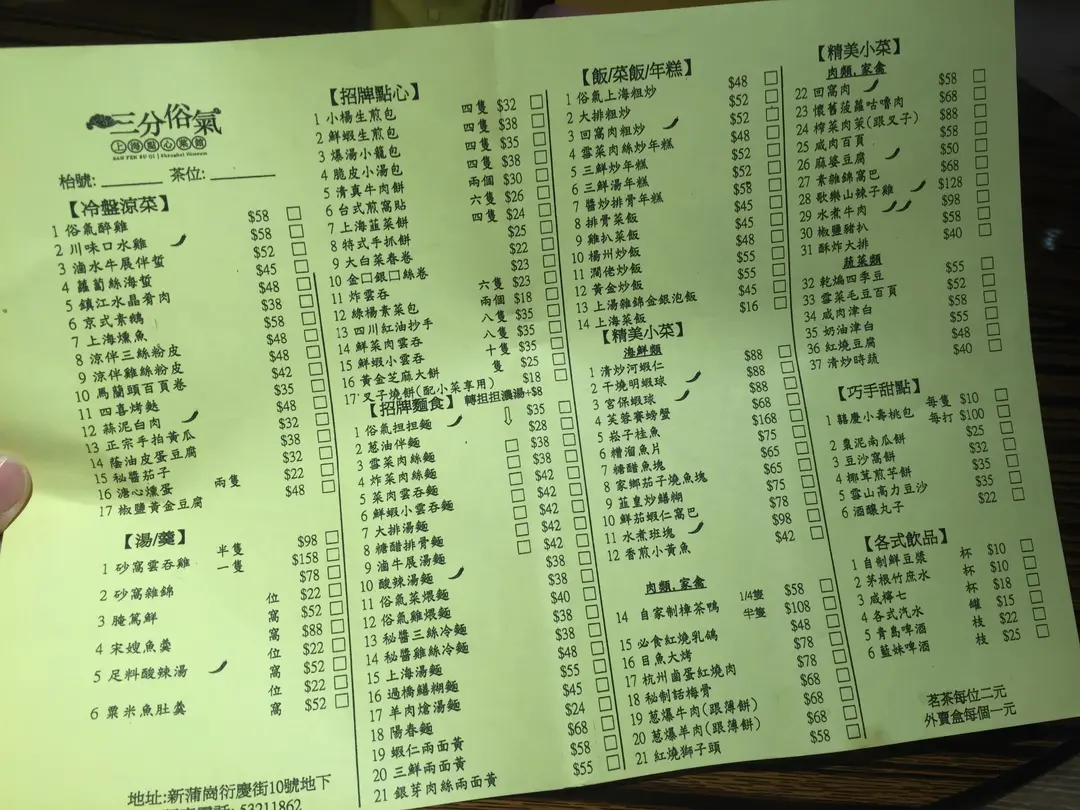 三分俗氣
上海點心麵館
SAN FEN SU QI | Shanghai Shumian
枱號: ______ 茶位: ______
【冷盤涼菜】
1 俗氣醉雞 $58
2 川味口水雞 $58
3 滷水牛展伴蜇 $52
4 蘿蔔絲海蜇 $45
5 鎮江水晶肴肉 $48
6 京式素鵝 $38
7 上海燻魚 $58
8 涼伴三絲粉皮 $48
9 涼伴雞絲粉皮 $48
10 馬蘭頭百頁卷 $42
11 四喜烤麩 $35
12 蒜泥白肉 $48
13 正宗手拍黃瓜 $32
14 蔭油皮蛋豆腐 $38
15 秘醬茄子 $32
16 溏心燻蛋 兩隻 $22
17 椒鹽黃金豆腐 $48
【湯/羹】
1 砂窩雲吞雞 半隻 $98
一隻 $158
2 砂窩雜錦 $78
3 腌篤鮮 位 $22
窩 $52
4 宋嫂魚羹 窩 $88
位 $22
5 足料酸辣湯 窩 $52
位 $22
6 粟米魚肚羹 窩 $52
地址:新蒲崗衍慶街10號地下
53211862
【招牌點心】
1 小楊生煎包 四隻 $32
2 鮮蝦生煎包 四隻 $38
3 爆湯小籠包 四隻 $35
4 脆皮小湯包 四隻 $38
5 清真牛肉餅 兩個 $30
6 台式煎窩貼 六隻 $26
7 上海韮菜餅 四隻 $24
8 特式手抓餅 $25
9 大白菜春卷 $22
10 金口銀口絲卷 $23
11 炸雲吞 六隻 $23
12 綠楊素菜包 兩個 $18
13 四川紅油抄手 八隻 $35
14 鮮菜肉雲吞 八隻 $35
15 鮮蝦小雲吞 十隻 $35
16 黃金芝麻大餅 隻 $25
17 叉子燒餅(配小菜享用) $18
【招牌麵食】 轉担担濃湯+$8
1 俗氣担担麵 $35
2 蔥油伴麵 $28
3 雪菜肉絲麵 $38
4 炸菜肉絲麵 $38
5 菜肉雲吞麵 $42
6 鮮蝦小雲吞麵 $42
7 大排湯麵 $42
8 糖醋排骨麵 $42
9 滷牛展湯麵 $42
10 酸辣湯麵 $38
11 俗氣菜煨麵 $38
12 俗氣雞煨麵 $40
13 秘醬三絲冷麵 $38
14 秘醬雞絲冷麵 $38
15 上海湯麵 $48
16 過橋鱔糊麵 $55
17 羊肉熗湯麵 $45
18 陽春麵 $24
19 蝦仁兩面黃 $68
20 三鮮兩面黃 $58
21 銀芽肉絲兩面黃 $55
【飯/菜飯/年糕】
1 俗氣上海粗炒 $48
2 大排粗炒 $52
3 回窩肉粗炒 $52
4 雪菜肉絲炒年糕 $48
5 三鮮炒年糕 $52
6 三鮮湯年糕 $52
7 醬炒排骨年糕 $58
8 排骨菜飯 $45
9 雞扒菜飯 $45
10 楊州炒飯 $48
11 濶佬炒飯 $55
12 黃金炒飯 $55
13 上湯雜錦金銀泡飯 $45
14 上海菜飯 $16
【精美小菜】
海鮮類
1 清炒河蝦仁 $88
2 干燒明蝦球 $88
3 宮保蝦球 $88
4 芙蓉賽螃蟹 $68
5 崧子桂魚 $168
6 糟溜魚片 $75
7 糖醋魚塊 $65
8 家鄉茄子燒魚塊 $65
9 韮皇炒鱔糊 $75
10 鮮茄蝦仁窩巴 $78
11 水煮班塊 $98
12 香煎小黃魚 $42
肉類.家禽
14 自家制樟茶鴨 1/4隻 $58
半隻 $108
15 必食紅燒乳鴿 $48
16 目魚大烤 $78
17 杭州鹵蛋紅燒肉 $78
18 秘制話梅骨 $68
19 蔥爆牛肉(跟薄餅) $68
20 蔥爆羊肉(跟薄餅) $68
21 紅燒獅子頭 $58
【精美小菜】
肉類.家禽
22 回窩肉 $58
23 懷舊菠蘿咕嚕肉 $68
24 榨菜肉菜(跟叉子) $88
25 咸肉百頁 $58
26 麻婆豆腐 $50
27 素雜錦窩巴 $68
28 歌樂山辣子雞 $128
29 水煮牛肉 $98
30 椒鹽豬扒 $58
31 酥炸大排 $40
蔬菜類
32 乾煸四季豆 $55
33 雪菜毛豆百頁 $52
34 咸肉津白 $58
35 奶油津白 $55
36 紅燒豆腐 $48
37 清炒時蔬 $40
【巧手甜點】
1 囍慶小壽桃包 每隻 $10
每打 $100
2 棗泥南瓜餅 $25
3 豆沙窩餅 $32
4 椰茸煎芋餅 $35
5 雪山高力豆沙 $35
6 酒釀丸子 $22
【各式飲品】
1 自制鮮豆漿 杯 $10
2 茅根竹庶水 杯 $10
3 咸檸七 杯 $18
4 各式汽水 罐 $15
5 青島啤酒 枝 $22
6 藍妹啤酒 枝 $25
茗茶每位二元
外賣盒每個一元